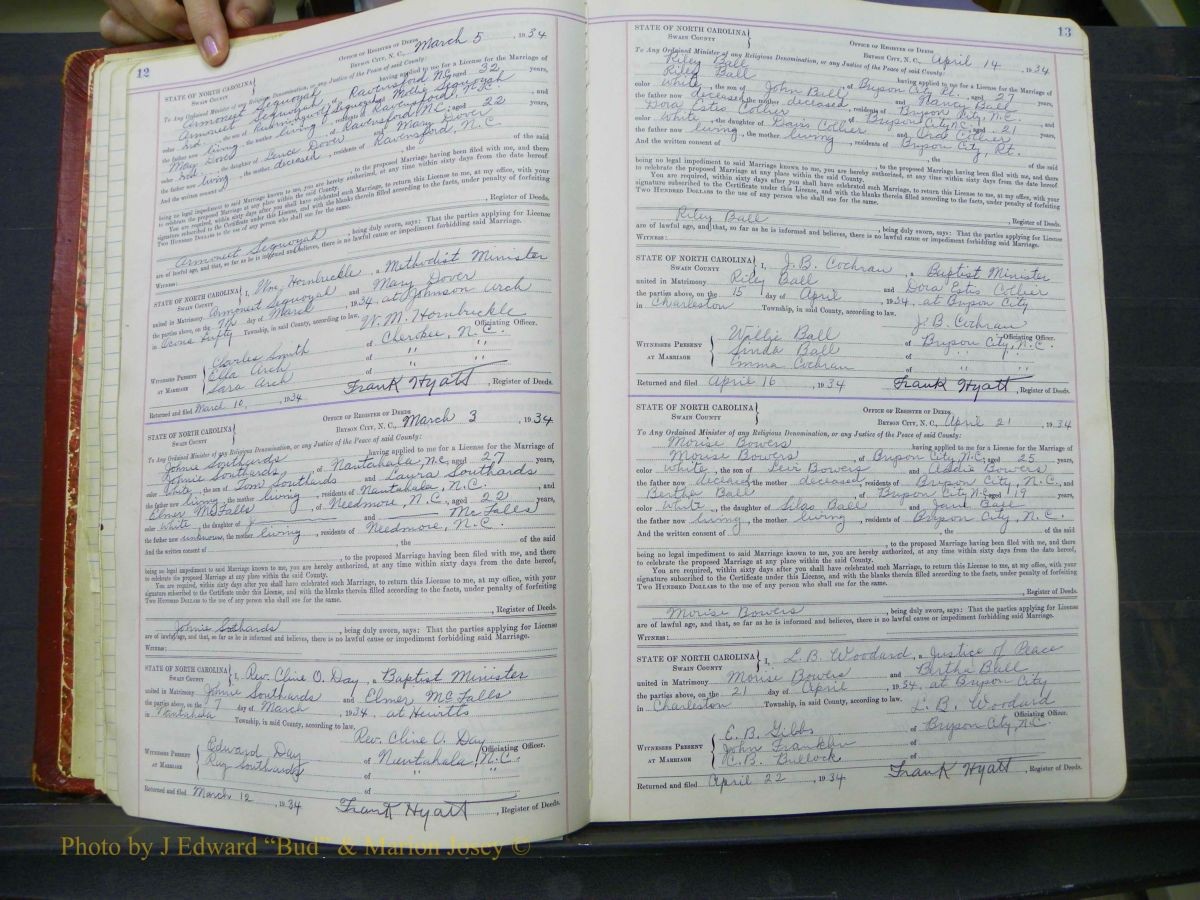 12
OFFICE OF REGISTER OF DEEDS
STATE OF NORTH CAROLINA
SWAIN COUNTY
BRYSON CITY, N. C., March 5, 1934
To Any Ordained Minister of any Religious Denomination, or any Justice of the Peace of said County:
Armoneet Sequoyah having applied to me for a License of Marriage of
Armoneet Sequoyah, of Ravensford N.C. aged 32 years,
color red, the son of Sequoyah and Mollie Sequoyah
the father now the mother living, residents of Ravensford, N.C. and
Mary Dover of Ravensford N.C.; aged 22 years,
color red, the daughter of Lance Dover and Mary Dover
the father now living, the mother deceased, residents of Ravensford, N.C.
And the written consent of , the of the said
, to the proposed Marriage having been filed with me, and there
being no legal impediment to said Marriage known to me, you are hereby authorized, at any time within sixty days from the date hereof
to celebrate the proposed Marriage at any place within the said County.
You are required, within sixty days after you shall have celebrated such Marriage, to return this License to me, at my office, with your
signature subscribed to the Certificate under this License, and with the blanks therein filled according to the facts, under penalty of forfeiting
TWO HUNDRED DOLLARS to the use of any person who shall sue for the same.
, Register of Deeds.
Armoneet Sequoyah, being duly sworn, says: That the parties applying for License
are of lawful age, and that, so far as he is informed and believes, there is no lawful cause or impediment forbidding said Marriage.
WITNESS:
STATE OF NORTH CAROLINA
SWAIN COUNTY
I, Wm. Hornbuckle, a Methodist Minister
united in Matrimony Armoneet Sequoyah and Mary Dover
the parties above, on the 7th day of March, 1934, at Johnson Arch
in Ocona Lufty Township, in said County, according to law.
W. M. Hornbuckle
Officiating Officer.
WITNESSES PRESENT AT MARRIAGE
Charles Smith of Cherokee, N.C.
Ella Arch of " "
Sara Arch of " "
Returned and filed March 10, 1934 Frank Hyatt, Register of Deeds.
OFFICE OF REGISTER OF DEEDS
STATE OF NORTH CAROLINA
SWAIN COUNTY
BRYSON CITY, N. C., March 3, 1934
To Any Ordained Minister of any Religious Denomination, or any Justice of the Peace of said County:
Johnie Southards having applied to me for a License for the Marriage of
Johnie Southards, of Nantahala, N.C. aged 27 years,
color White, the son of Tom Southards and Laura Southards
the father now living, the mother living, residents of Nantahala, N.C., and
Elmer McFalls of Needmore, N.C., aged 22 years,
color white, the daughter of and McFalls
the father now unknown, the mother living, residents of Needmore, N.C.
And the written consent of , the of the said
, to the proposed Marriage having been filed with me, and there
being no legal impediment to said Marriage known to me, you are hereby authorized, at any time within sixty days from the date hereof,
to celebrate the proposed Marriage at any place within the said County.
You are required, within sixty days after you shall have celebrated such Marriage, to return this License to me, at my office, with your
signature subscribed to the Certificate under this License, and with the blanks therein filled according to the facts, under penalty of forfeiting
TWO HUNDRED DOLLARS to the use of any person who shall sue for the same.
, Register of Deeds.
Johnie Sothards, being duly sworn, says: That the parties applying for License
are of lawful age, and that, so far as he is informed and believes, there is no lawful cause or impediment forbidding said Marriage.
WITNESS:
STATE OF NORTH CAROLINA
SWAIN COUNTY
I, Rev. Cline O. Day, a Baptist Minister
united in Matrimony Johnie Southards and Elmer McFalls
the parties above, on the 7 day of March, 1934, at Hewitts
in Nantahala Township, in said County, according to law.
Rev. Cline O. Day
Officiating Officer.
WITNESSES PRESENT AT MARRIAGE
Edward Day of Nantahala N.C.
Roy Southards of " "
of
Returned and filed March 12, 1934 Frank Hyatt, Register of Deeds.
13
STATE OF NORTH CAROLINA
SWAIN COUNTY
OFFICE OF REGISTER OF DEEDS
BRYSON CITY, N. C., April 14, 1934
To Any Ordained Minister of any Religious Denomination, or any Justice of the Peace of said County:
Riley Ball having applied to me for a License for the Marriage of
Riley Ball, of Bryson City Rt.; aged 27 years,
color White, the son of John Ball and Nancy Ball
the father now deceased the mother deceased, residents of Bryson City, N.C. and
Dora Estis Collier of Bryson City N.C. aged 21 years,
color White, the daughter of Collier and Collier
the father now living, the mother living, residents of Bryson City, Rt.
And the written consent of , the of the said
, to the proposed Marriage having been filed with me, and there
being no legal impediment to said Marriage known to me, you are hereby authorized, at any time within sixty days from the date hereof
to celebrate the proposed Marriage at any place within the said County.
You are required, within sixty days after you shall have celebrated such Marriage, to return this License to me, at my office, with your
signature subscribed to the Certificate under this License, and with the blanks therein filled according to the facts, under penalty of forfeiting
TWO HUNDRED DOLLARS to the use of any person who shall sue for the same.
, Register of Deeds.
Riley Ball, being duly sworn, says: That the parties applying for License
are of lawful age, and that, so far as he is informed and believes, there is no lawful cause or impediment forbidding said Marriage.
WITNESS:
STATE OF NORTH CAROLINA
SWAIN COUNTY
I, J. B. Cochran, a Baptist Minister
united in Matrimony Riley Ball and Dora Estis Collier
the parties above, on the 15 day of April, 1934, at Bryson City
in Charleston Township, in said County, according to law.
J. B. Cochran
Officiating Officer.
WITNESSES PRESENT AT MARRIAGE
Willie Ball of Bryson City, N.C.
Linda Ball of " "
Emma Cochran of " "
Returned and filed April 16, 1934 Frank Hyatt, Register of Deeds.
STATE OF NORTH CAROLINA
SWAIN COUNTY
OFFICE OF REGISTER OF DEEDS
BRYSON CITY, N. C., April 21, 1934
To Any Ordained Minister of any Religious Denomination, or any Justice of the Peace of said County:
Mourise Bowers having applied to me for a License for the Marriage of
Mourise Bowers, of Bryson City N.C.; aged 25 years,
color White, the son of Levi Bowers and Addie Bowers
the father now deceased the mother deceased, residents of Bryson City, N.C., and
Bertha Ball of Bryson City N.C. aged 19 years,
color White, the daughter of Silas Ball and Jane Ball
the father now living, the mother living, residents of Bryson City, N.C.
And the written consent of , the of the said
, to the proposed Marriage having been filed with me, and there
being no legal impediment to said Marriage known to me, you are hereby authorized, at any time within sixty days from the date hereof,
to celebrate the proposed Marriage at any place within the said County.
You are required, within sixty days after you shall have celebrated such Marriage, to return this License to me, at my office, with your
signature subscribed to the Certificate under this License, and with the blanks therein filled according to the facts, under penalty of forfeiting
TWO HUNDRED DOLLARS to the use of any person who shall sue for the same.
, Register of Deeds.
Mourise Bowers, being duly sworn, says: That the parties applying for License
are of lawful age, and that, so far as he is informed and believes, there is no lawful cause or impediment forbidding said Marriage.
WITNESS:
STATE OF NORTH CAROLINA
SWAIN COUNTY
I, L. B. Woodard, a Justice of Peace
united in Matrimony Mourise Bowers and Bertha Ball
the parties above, on the 21 day of April, 1934, at Bryson City
in Charleston Township, in said County, according to law.
L. B. Woodard
Officiating Officer.
WITNESSES PRESENT AT MARRIAGE
E. B. Gibbs of Bryson City, N.C.
John Franklin of
C. B. Bullock of
Returned and filed April 22, 1934 Frank Hyatt, Register of Deeds.
Photo by J Edward "Bud" & Marion Josey ©